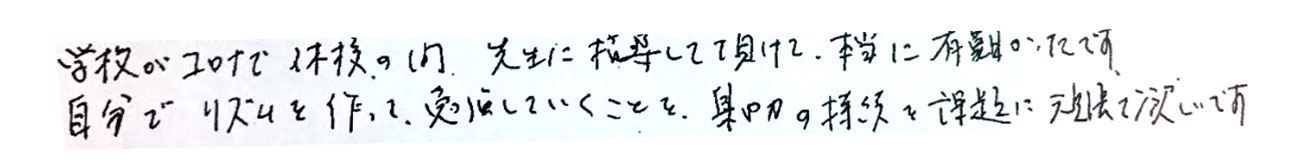 学校がコロナで休校の間、先生に指導して頂けて、本当に有難かったです
自分でリズムを作って、勉強していくことを、集中力の持続を課題に 頑張って欲しいです